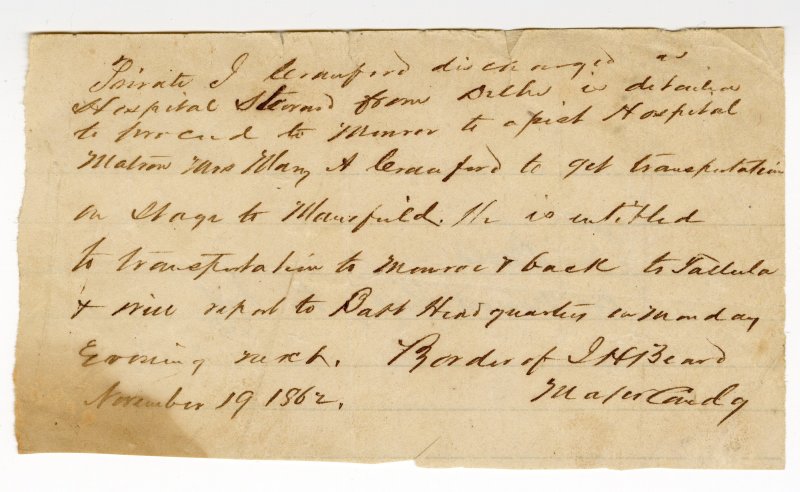 Private J Crawford discharged as
Hospital Steward from Delhi is detailed
to proceed to Monroe to apist Hospital
Matron Mrs Mary A Crawford to get transportation
on Stage to Mansfield. He is entitled
to transportation to Monroe & back to Tallula
& will report to Batt Head quarters on Monday
Evening next. By order of J H Beard
November 19 1862. Major Comdg